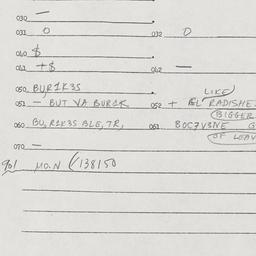 030 —
031 O 032 O
040 $
041 +$ 042 —
050 BUR1K3S
LIKE
051 — BUT YA BUR1K 052 + RADISHE
BIGGER
060 BU, R1K3S BLE, TR, 061 BOC7V3NE G
OF LEAV
070 —
901 MAN (138150